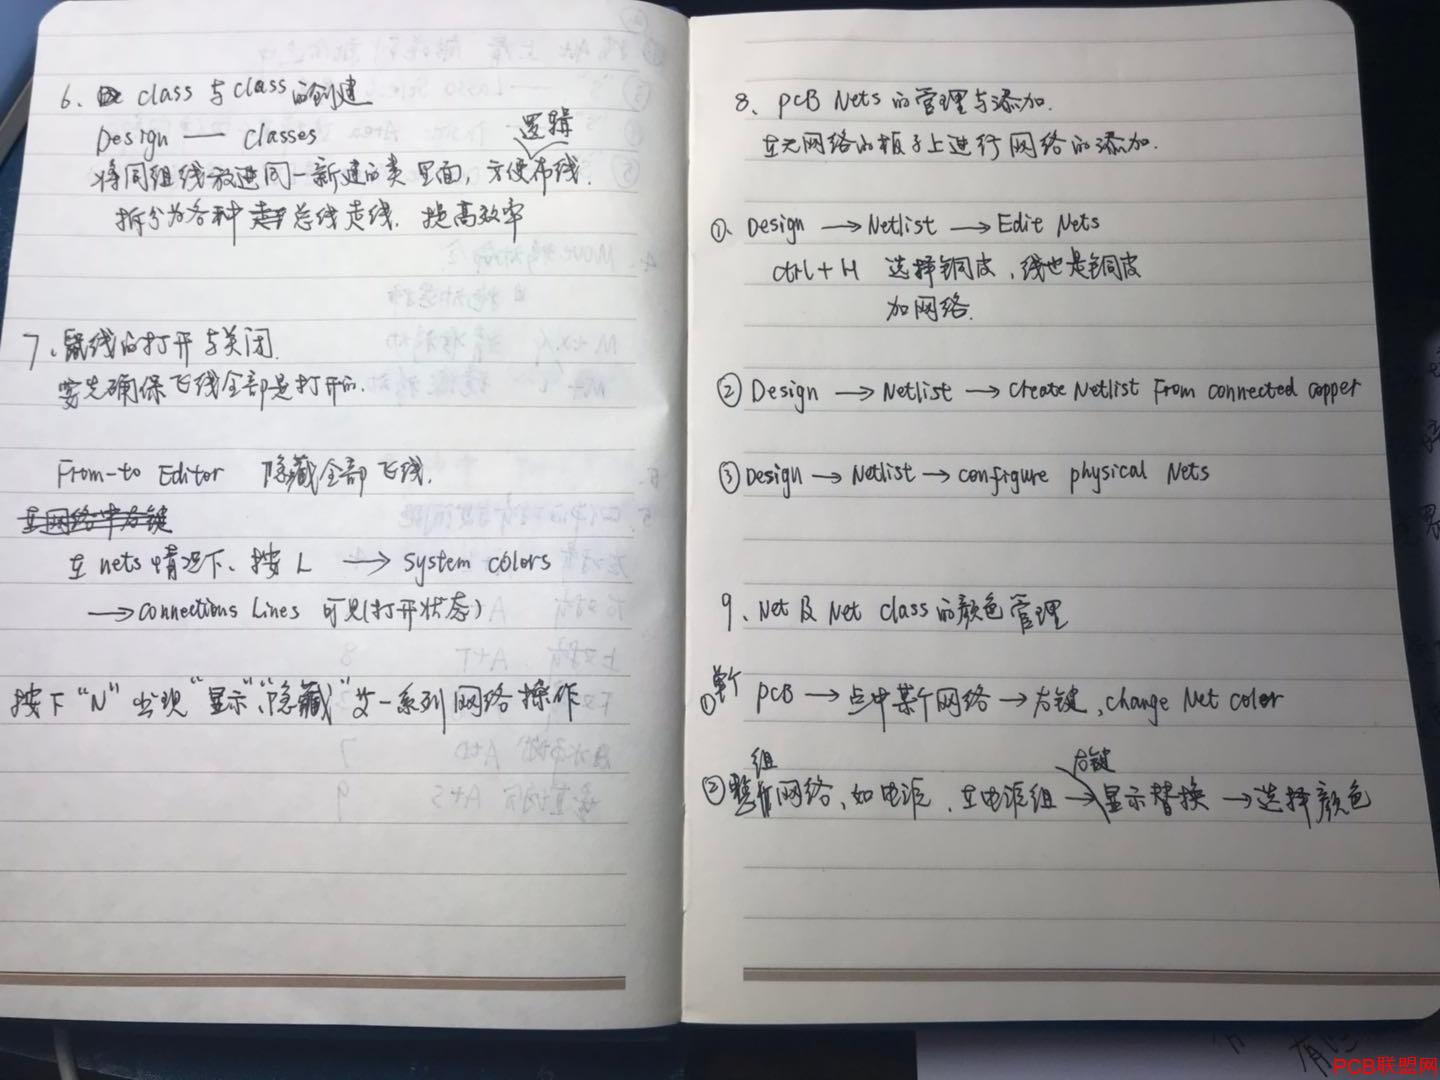 6、class与class的创建
Design — Classes
逻辑
将同组线放进同一新建的类里面，方便布线.
拆分为各种总线走线. 提高效率
7、鼠线的打开与关闭.
要先确保飞线全部是打开的.
From-to Editor 隐藏全部飞线.
在网络中右键
在nets情况下、按L → System colors
→ Connections Lines 可见(打开状态)
按下“N”出现“显示”、“隐藏”等一系列网络操作
8、PCB Nets的管理与添加.
在无网络的板子上进行网络的添加.
①、Design → Netlist → Edit Nets
ctrl+H 选择铜皮、线也是铜皮
加网络.
② Design → Netlist → Create Netlist From connected copper
③ Design → Netlist → configure physical Nets
9、Net及Net Class的颜色管理
单个
① PCB → 点中某个网络 → 右键、change Net color
组 右键
② 网络、如电源、在电源组 → 显示替换 → 选择颜色
PCB联盟网